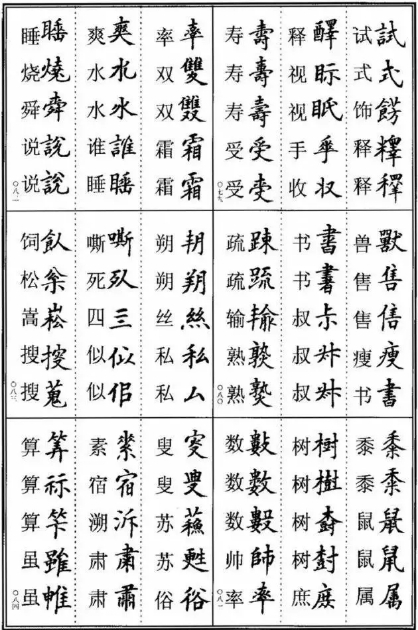 试試式式饰餝释释釋
释醳视眎视眡手收収
寿壽寿壽寿壽受受受
〇七九
兽獸售售售瘦瘦书書
书書书書叔尗叔叔
疏踈疏䟽输熟熟
〇八〇
黍黍黍黍鼠鼠鼠鼠属属
树樹树樹树树尌庶庻
数數数數数帅帥率率
〇八一
率率双雙双霜霜霜霜
爽爽水水水水谁誰睡睡
睡睡烧燒舜舜说說说說
〇八二
朔朔丝絲私私私厶
嘶嘶死四三似佀似佀
饲飤松枩嵩崧搜搜蒐
〇八三
叟叟叟苏蘇苏甦俗俗
素素宿宿溯泝肃肅肃肅
算筭算祘算虽雖虽
〇八四